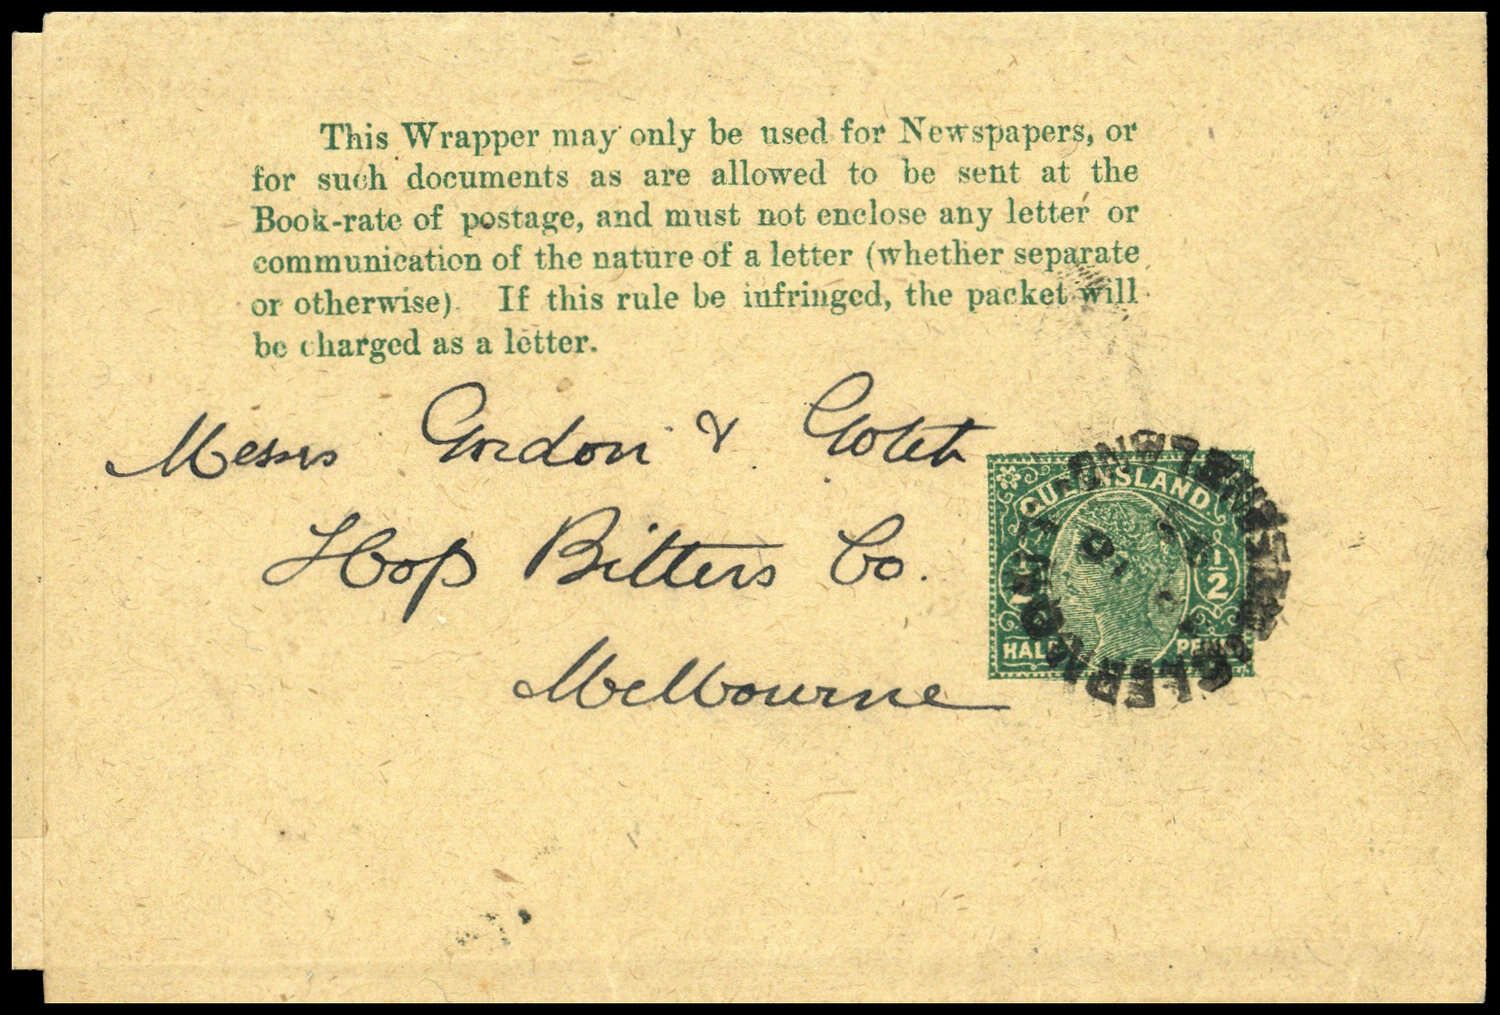 This Wrapper may only be used for Newspapers, or
for such documents as are allowed to be sent at the
Book-rate of postage, and must not enclose any letter or
communication of the nature of a letter (whether separate
or otherwise). If this rule be infringed, the packet will
be charged as a letter.
Messrs Gordon & Gotch
Hop Bitters Co.
Melbourne
QUEENSLAND
1/2
HALF PENNY